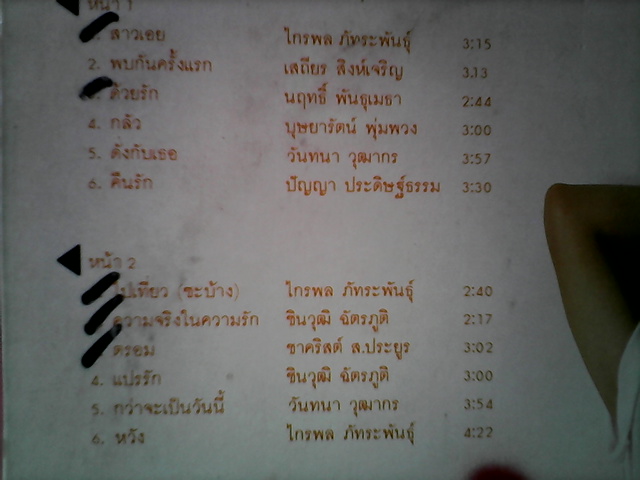 หน้า 1
สาวเอย ไกรพล ภัทระพันธุ์ 3:15
2. พบกันครั้งแรก เสถียร สิงห์เจริญ 3.13
ด้วยรัก นฤทธิ์ พันธุเมธา 2:44
4. กลัว บุษยารัตน์ พุ่มพวง 3:00
5. ดังกับเธอ วันทนา วุฒากร 3:57
6. คืนรัก ปัญญา ประดิษฐ์ธรรม 3:30
หน้า 2
ไปเที่ยว (ซะบ้าง) ไกรพล ภัทระพันธุ์ 2:40
ความจริงในความรัก ชินวุฒิ ฉัตรภูติ 2:17
ตรอม ชาคริสต์ ส.ประยูร 3:02
4. แปรรัก ชินวุฒิ ฉัตรภูติ 3:00
5. กว่าจะเป็นวันนี้ วันทนา วุฒากร 3:54
6. หวัง ไกรพล ภัทระพันธุ์ 4:22